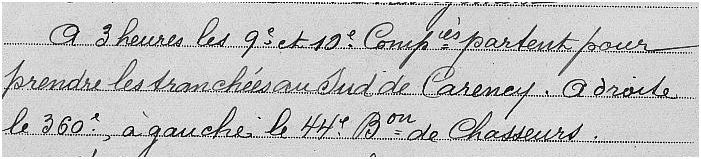 A 3 heures les 9e et 10e Compies partent pour
prendre les tranchées au Sud de Carency. A droite
le 360e, à gauche le 44e Bon de Chasseurs.